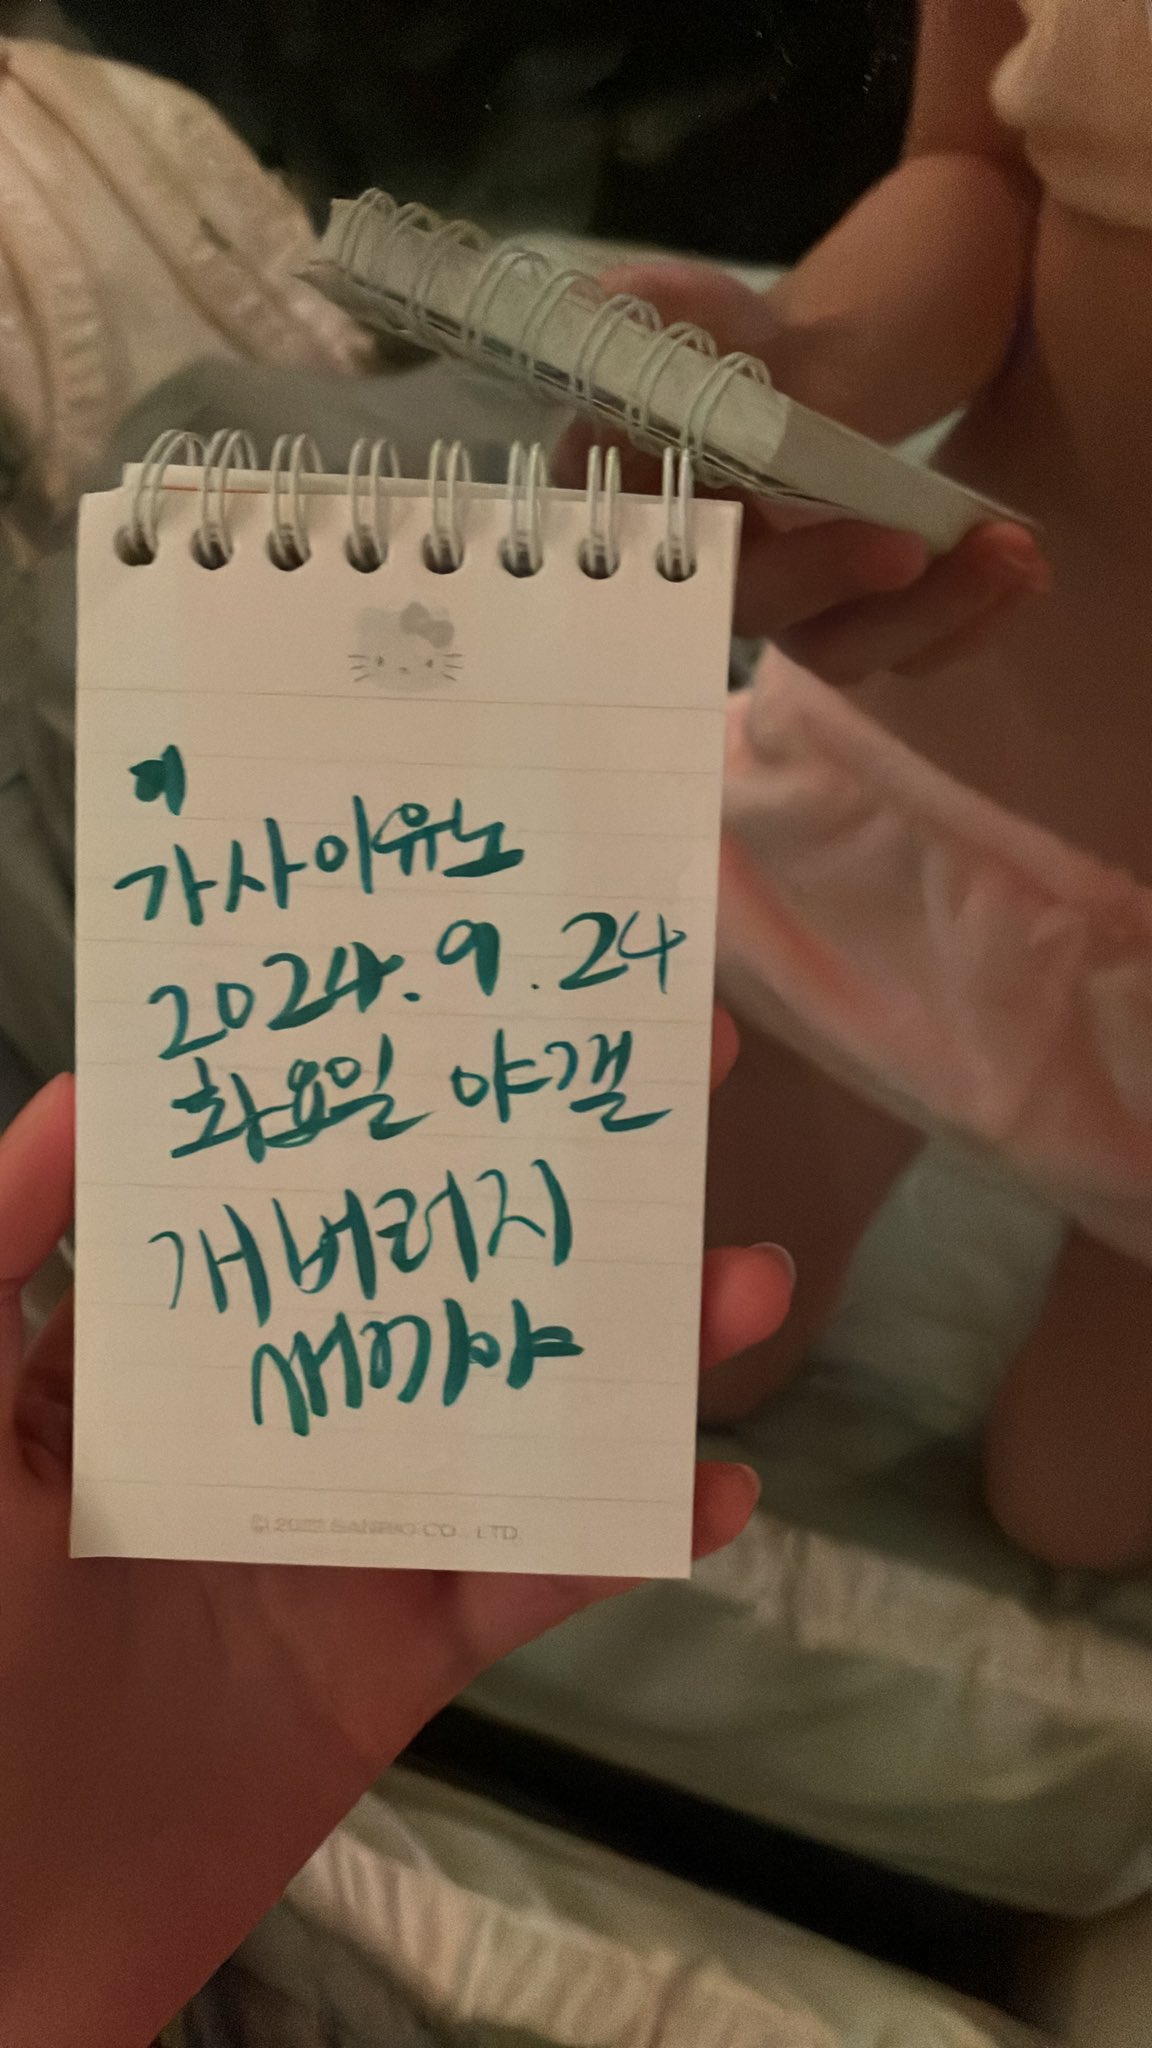 가사이유노
2024.9.24
화요일 야갤
개버러지
새끼야
SANRIO CO., LTD.